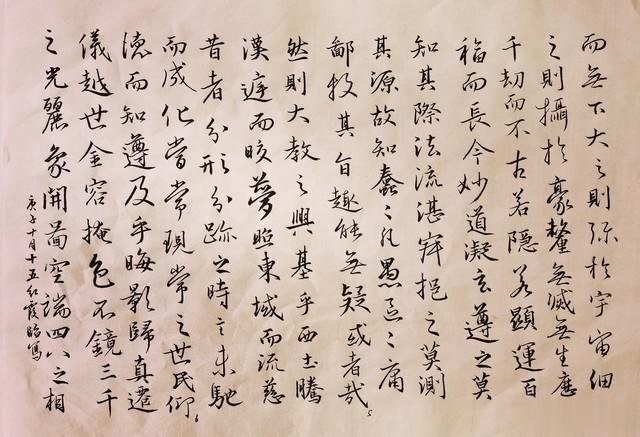 而無下大之則弥於宇宙細
之則攝於豪釐無滅無生歷
千劫而不古若隱若顯運百
福而長今妙道凝玄遵之莫
知其際法流湛寂挹之莫測
其源故知蠢〻凡愚區〻庸
鄙投其旨趣能無疑或者哉
然則大教之興基乎西土騰
漢庭而皎夢照東域而流慈
昔者分形分跡之時言未馳
而成化當常現常之世民仰
德而知遵及乎晦影歸真遷
儀越世金容掩色不鏡三千
之光麗象開圖空端四八之相
庚子十月十五紅霞臨寫